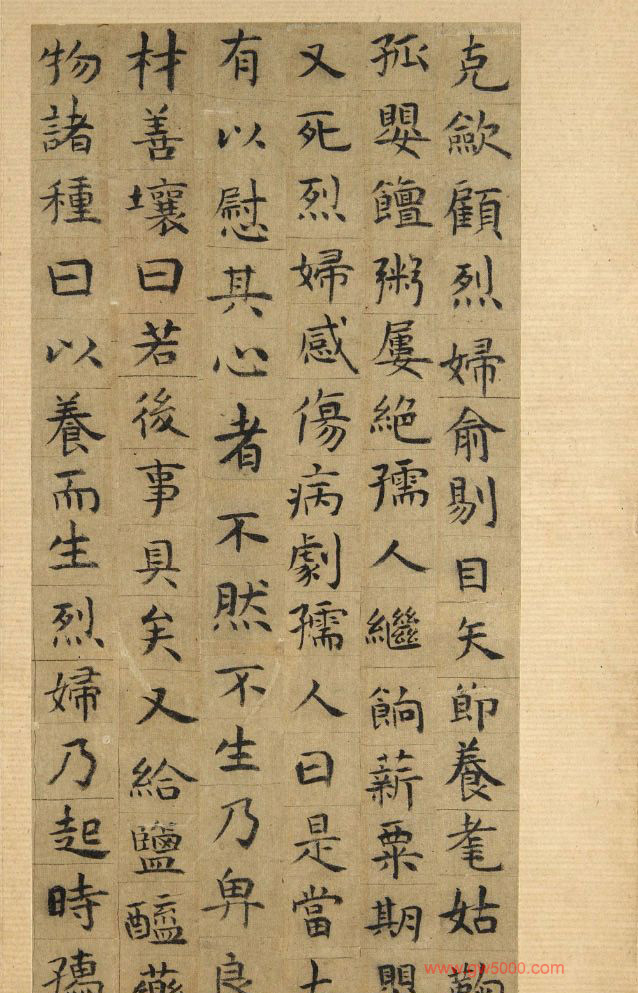 克歛顧烈婦俞剔目矢節養耄姑
孤嬰饘粥屢絕孺人繼餉薪粟期
又死烈婦感傷病劇孺人曰是當
有以慰其心者不然不生乃畀良
材善壤曰若後事具矣又給鹽醯藥
物諸種曰以養而生烈婦乃起時孺
www.gw5000.com